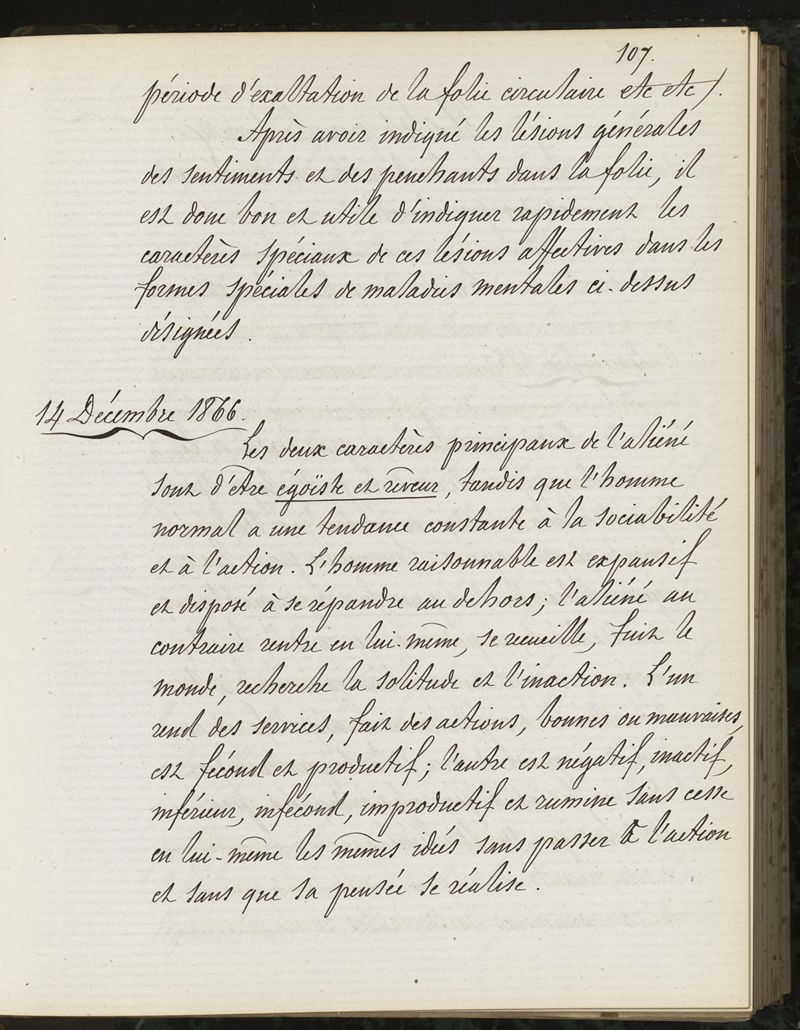 107.
période d'exaltation de la folie circulaire etc etc).
Après avoir indiqué les lésions générales
des sentiments et des penchants dans la folie, il
est donc bon et utile d'indiquer rapidement les
caractères spéciaux de ces lésions affectives dans les
formes spéciales de maladies mentales ci-dessus
désignées.
14 Décembre 1866.
Les deux caractères principaux de l'aliéné
sont d'être égoïste et rêveur, tandis que l'homme
normal a une tendance constante à la sociabilité
et à l'action. L'homme raisonnable est expansif
et disposé à se répandre au dehors; l'aliéné au
contraire rentre en lui-même, se recueille, fuit le
monde, recherche la solitude et l'inaction. L'un
rend des services, fait des actions, bonnes ou mauvaises,
est fécond et productif; l'autre est négatif, inactif,
inférieur, infécond, improductif et rumine sans cesse
en lui-même les mêmes idées sans passer à l'action
et sans que sa pensée se réalise.